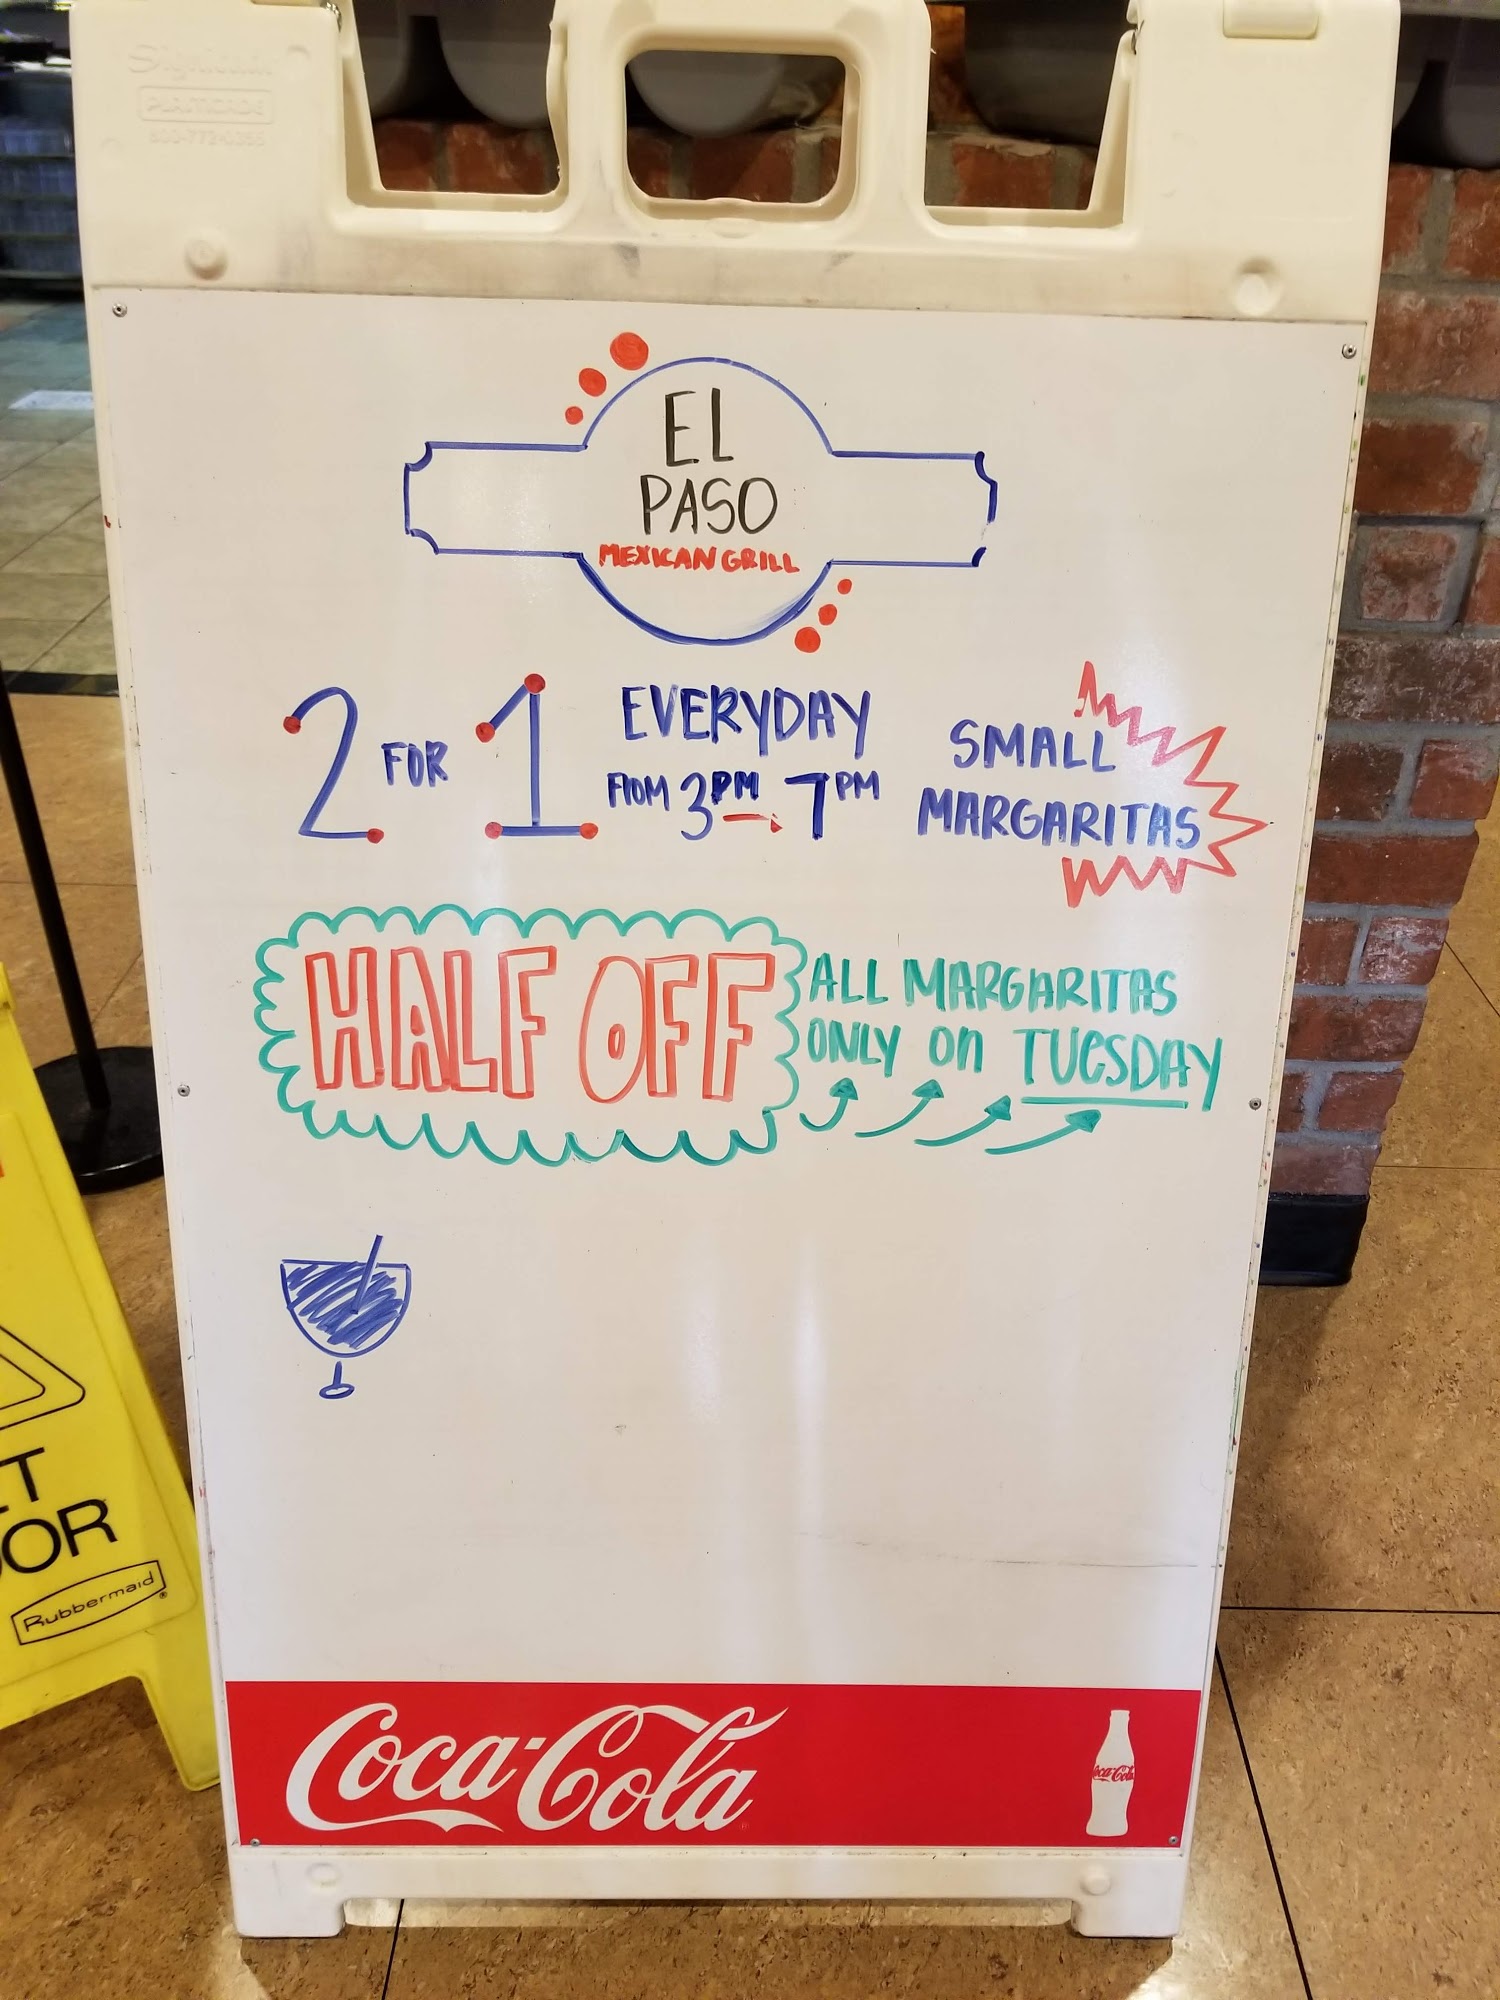 Signicade
PLASTICADE
800-772-0355
EL
PASO
MEXICAN GRILL
2 FOR 1
EVERYDAY
FROM 3PM → 7PM
SMALL
MARGARITAS
HALF OFF
ALL MARGARITAS
ONLY On TUESDAY
OR
Rubbermaid
Coca-Cola
Coca-Cola